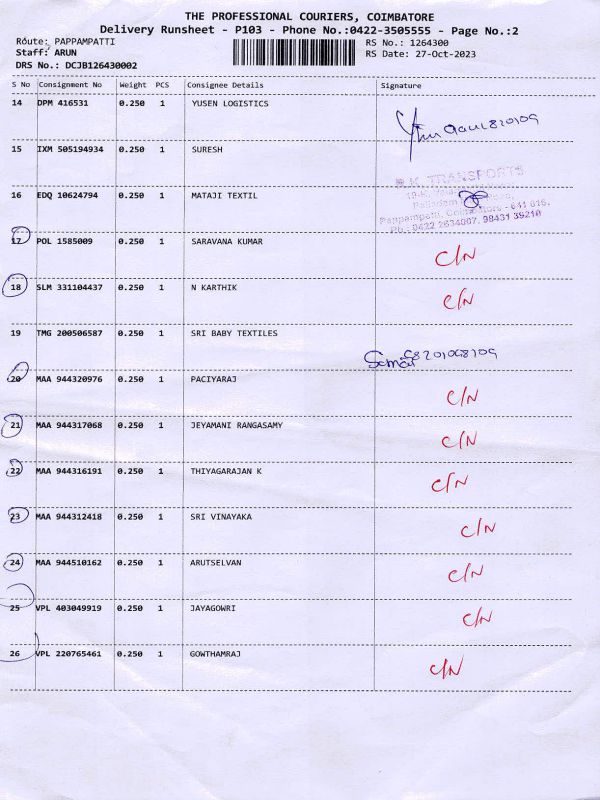 THE PROFESSIONAL COURIERS, COIMBATORE
Delivery Runsheet - P103 - Phone No.:0422-3505555 - Page No.:2
Route: PAPPAMPATTI
RS No.: 1264300
Staff: ARUN
RS Date: 27-Oct-2023
DRS No.: DCJB126430002
S No Consignment No Weight PCS Consignee Details Signature
14 DPM 416531 0.250 1 YUSEN LOGISTICS
15 IXM 505194934 0.250 1 SURESH
16 EDQ 10624794 0.250 1 MATAJI TEXTIL
S.K TRANSPORTS
Palladam
Pappampatti, Coimbatore - 641 016.
Ph: 0422 2634007, 98431 39210
17 POL 1585009 0.250 1 SARAVANA KUMAR C/N
18 SLM 331104437 0.250 1 N KARTHIK C/N
19 TMG 200506587 0.250 1 SRI BABY TEXTILES
20 MAA 944320976 0.250 1 PACIYARAJ C/N
21 MAA 944317068 0.250 1 JEYAMANI RANGASAMY C/N
22 MAA 944316191 0.250 1 THIYAGARAJAN K C/N
23 MAA 944312418 0.250 1 SRI VINAYAKA C/N
24 MAA 944510162 0.250 1 ARUTSELVAN C/N
25 VPL 403049919 0.250 1 JAYAGOWRI C/N
26 VPL 220765461 0.250 1 GOWTHAMRAJ C/N